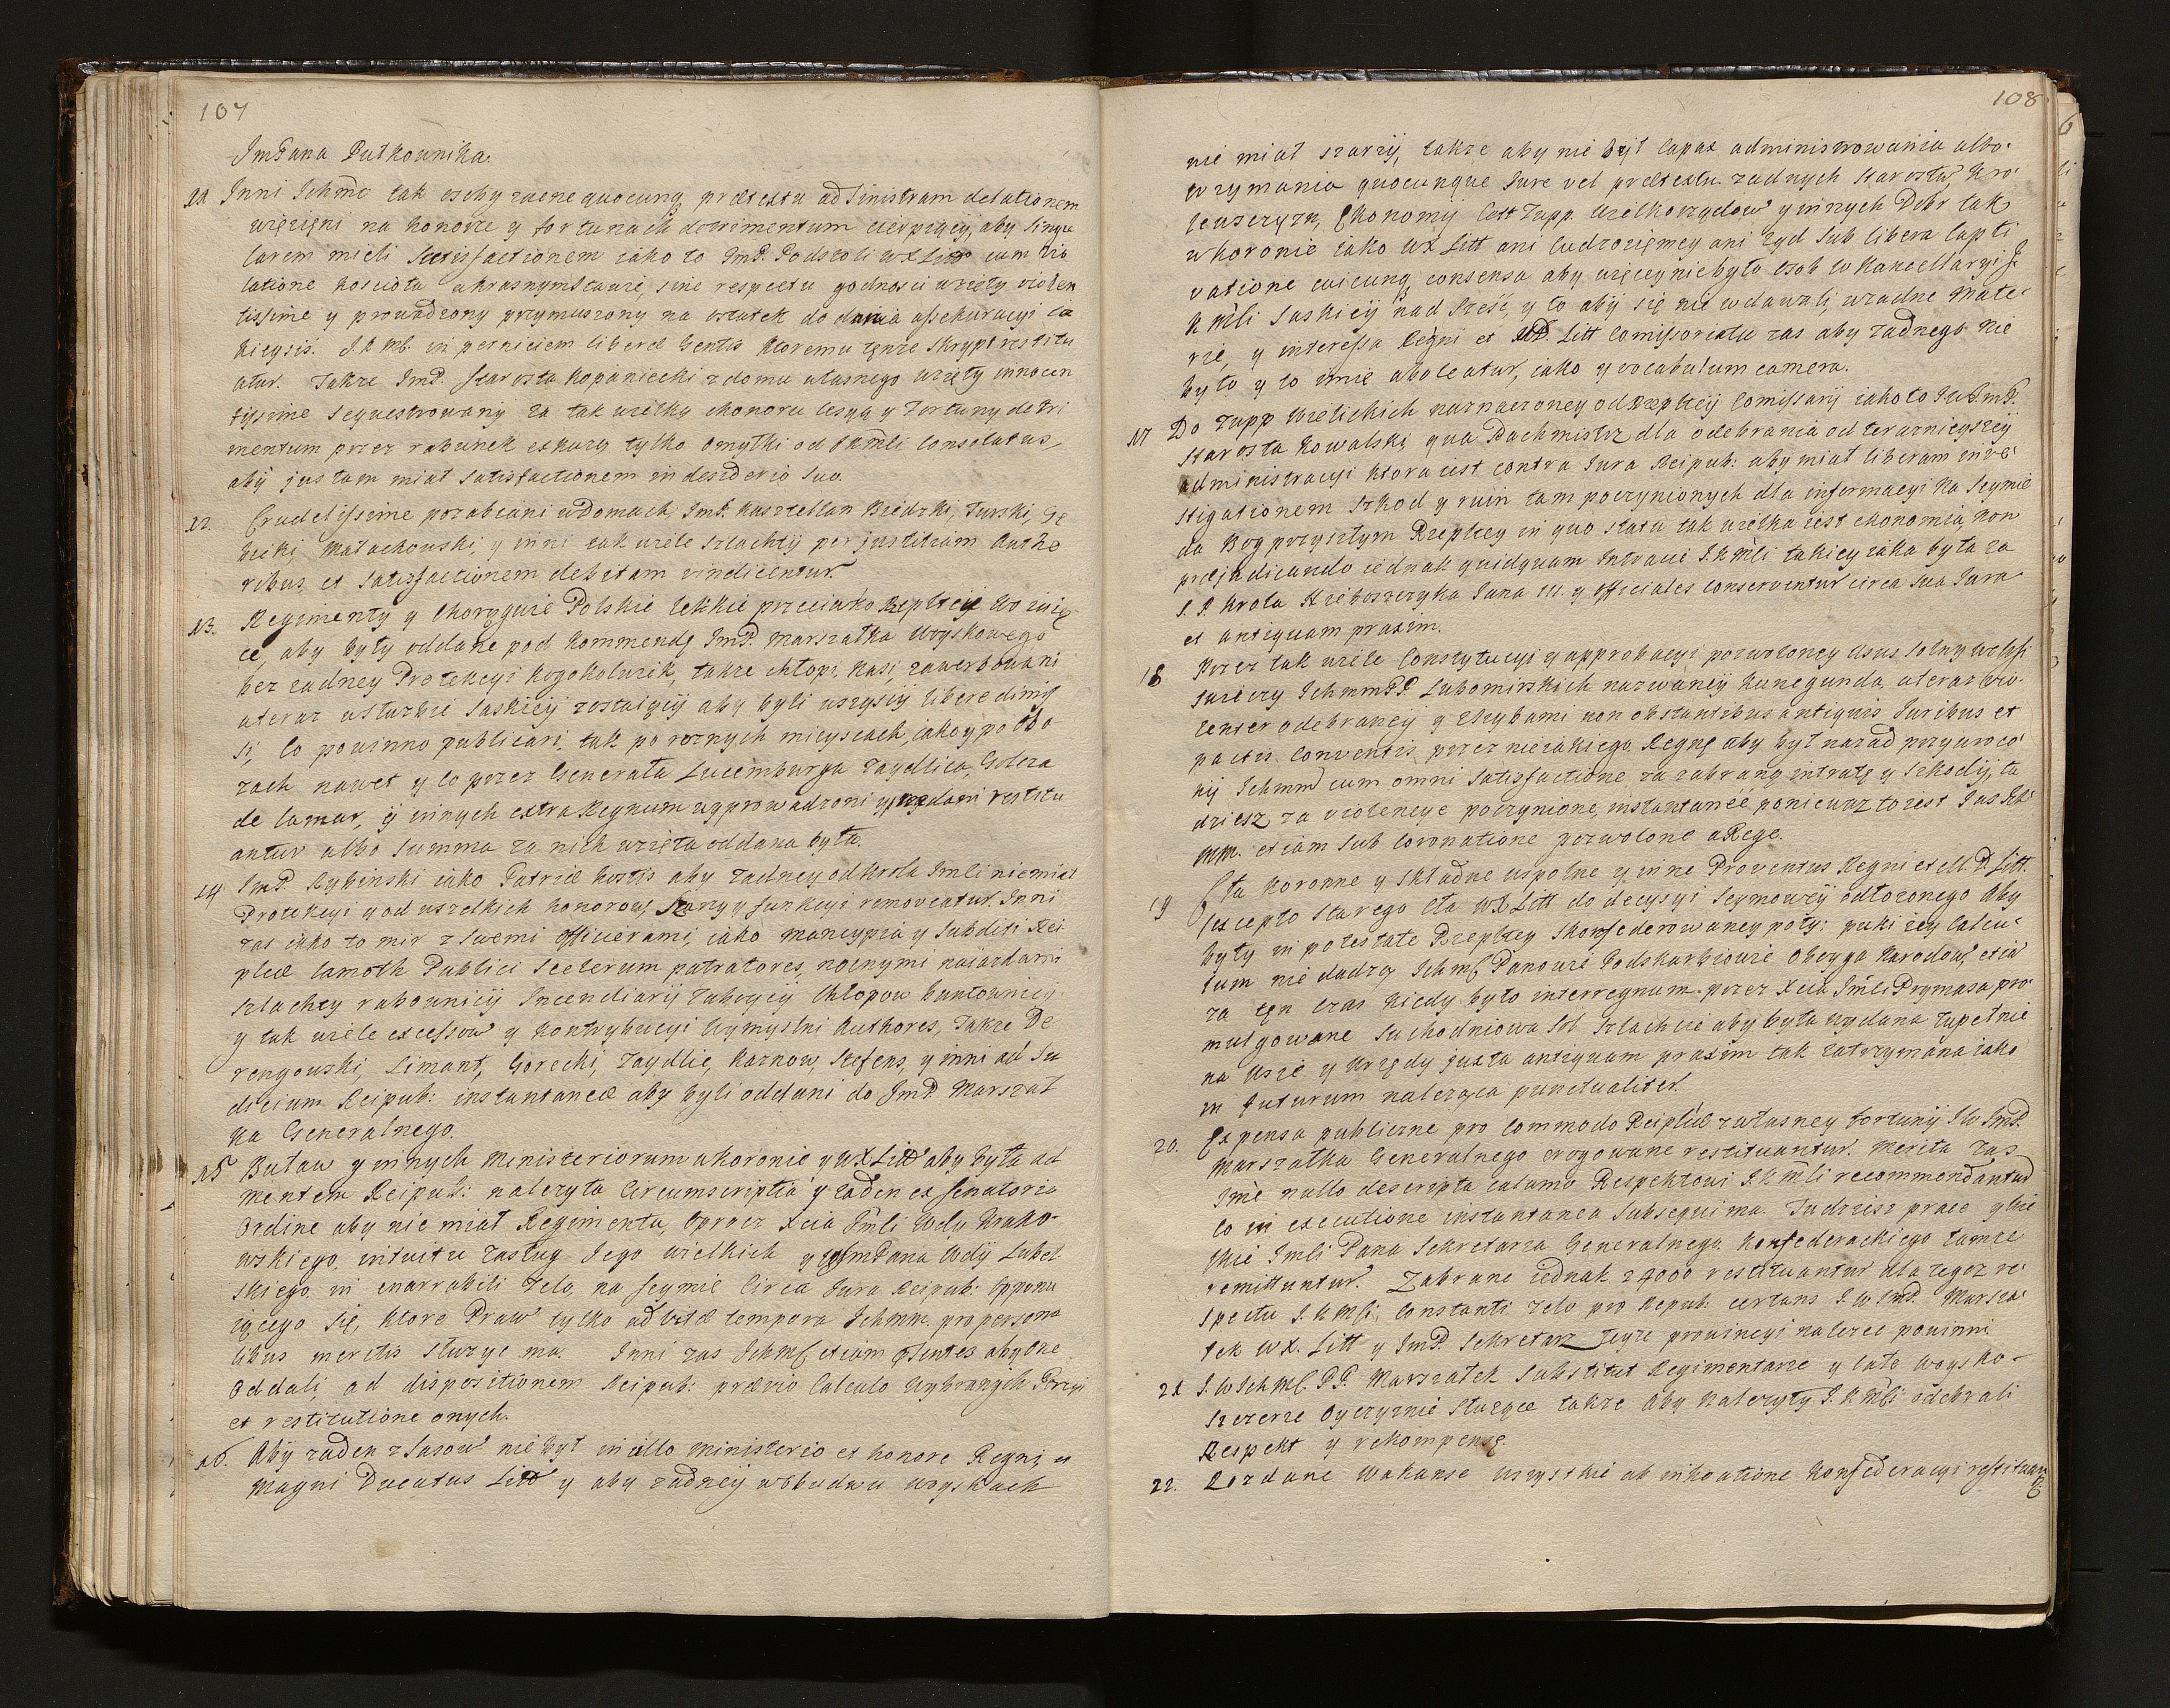 107
ImPana Putkownika.
11 Inni Ichmc tak osoby zacne quocunq prætextu ad Sinistram delationem
więzięni na honorze y fortunach detrimentum cierpięcy, aby Singu
larem mieli Satisfactionem iako to ImP. Podstoli WX Litto cum vio
latione Kościoła w Krasnymstawie, sine respectu godności wzięty violen
tissime y prowadzony przymuszony na ostatek do dania assekuracyi ia
kieysiś J.K.M. in perniciem liberæ Gentis ktoremu tęnże skrypt restitu
atur. Także ImP. Starosta Kopaniecki z domu własnego wzięty innocen
tissime sequestrowany za tak wielką honoru lesyą y Fortuny detri
mentum przez rabunek exkuzą tylko omyłki od JKmsci consolatus,
aby justam miał satisfactionem in desiderio suo.
12. Crudelissime pozabiani w Domach, ImP. Kasztellan Biedzki, Turski, Gę
bicki, Małachowski, y inni tak wiele szlachty per justitiam Autho
ribus et Satisfactionem debitam vindicentur.
13. Regimenty y Choręgwie Polskie lekkie przeciwko Rzpltey woiuią
ce, aby były oddane pod kommendę ImP. Marszałka Woyskowego
bez żadney Protekcyi kogokolwiek, także chłopi nasi zawerbowani
a teraz w służbie Saskiey zostaięcy aby byli wszyscy libere dimis
si, Co powinno publicari, tak po roznych mieyscach, iako y po Obo
zach nawet y co przez Generała Lucemburga Zaydlica, Goltza
de Lamar, y innych extra Regnum wyprowadzoni y przedani restitu
antur albo Summa za nich wzięta oddana była.
14 ImP. Rybinski iako Patriæ hostis aby żadney od Krola Imci nie miał
Protekcyi y od wszelkich honorow, Szarży y funkcyi removeatur. Inni
zas iako to mir z swemi Officierami, iako mancypia y Subditi Rei
plcæ Lamoth Publici Scelerum patratores, nocnymi naiazdami
szlachty rabownicy Incendiarij Zaboycy Chłopow buntownicy
y tak wiele excessow y kontrybucyi wymyslni Authores, Także De
rengowski, Limant, Gorecki, Zaydlic, Kaznow, Stefens, y inni ad Iu
dicium Reipub: instantaneæ aby byli oddani do ImP. Marszał
ka Generalnego.
15 Buław y innych Ministeriorum w Koronie y WX Litto aby była ad
mentem Reipub: należyta Circumscriptia y żaden ex Senatorio
Ordine aby nie miał Regimentu, Oprocz Xcia Imci Wdy Krako-
wskiego, intuitu zasług Jego wielkich y ImPana Wdy Lubel
skiego in enarrabili zelo, na Seymie Circa Jura Reipub: Opponu
iącego się, ktore Prawo tylko ad vitæ tempora Ichmm. pro persona
libus meritis służyc ma. Inni zas Ichmc etiam absentes aby one
Oddali ad dispositionem Reipub: prævio Calculo wybranych Porcyi
et restitutione onych.
16. Aby żaden z Sasow nie był in ullo Ministerio et honore Regni et
Magni Ducatus Litt y aby żadney w obudwu woyskach
108
nie miał szarży, także aby nie był Capax administrowania albo
trzymania quocunque Jure vel prætextu żadnych Starostw, Kro
lewszczyzn, Ekonomij Cett Zupp. Wielkorządow y innych Dobr tak
w Koronie iako WX Litt ani Cudzozięmcy ani Zyd Sub libera Capti
vatione cuicunq consensu aby więcey nie było Osob w Kancellaryi J.
K Mci Saskiey nad Sześć, y to aby się nie wdawali, w żadne mate
rie, y interessa Regni et MD. Litt Comissoriatu zas aby żadnego nie
było y to imie aboleatur, iako y vocabulum camera.
17 Do Zupp Wielickich naznaczoney od Rzepltey Comissarij iako to JWImP.
Starosta Kowalski, qua Bachmistrz dla odebrania od teraznieyszey
administracyi ktora iest contra Jura Reipub: aby miał liberam inve
stigationem szkod y ruin tam poczynionych dla informacyi na Seymie
da Bog przyszłym Rzepltey in quo statu tak wielka iest ekonomia, non
præjudicando iednak quidquam Intracie J.K Mci takiey iaka była za
S.P. Krola Nieboszczyka Jana III. y Officiales conserventur circa sua Jura
et antiquam praxim.
18 Przez tak wiele Constytucyi y approbacyi pozwoloney Usus Solny we Wsi
Siercey IchmmPP. Lubomirskich nazwaney Kunegunda, a teraz Vio
lenter odebraney y Chybami non obstantibus antiquis Juribus et
pactis Conventis przez nieiakiego Regnę aby był nazad przywroco
ny Ichmm cum omni Satisfactione za zabraną intratę y szkody, ta
dziesz za violencye poczynione, instantaneé ponieważ to iest Jus Ich
mm. etiam sub Coronatione pozwolone a Rege.
19 Cła Koronne y Składne wspolne y inne Proventus Regni et M.D. Litt.
excepto Starego Cła WX Litt do decyzyi Seymowey odłożonego aby
były in potestate Rzepltey skonfederowaney poty: puki iey Calcu
lum nie dadzą Ichmc Panowie Podskarbiowie Oboyga Narodow, etia
za tęn czas kiedy było interregnum przez Xcia Imci Prymasa pro
mulgowane Suchodniowa Sol szlachcie aby była wydana zupełnie
na Wsie y Urzędy juxta antiquam praxim tak zatrzymana iako
in futurum należąca punctualiter.
20. Expensa publiczne pro Commodo Reiplcæ z własney fortuny JW ImP.
Marszałka Generalnego erogowane restituantur. Merita zas
Ime nullo descripta calamo Respektowi J.K Mci recommendantur
Co in executione instantanea Subsequi ma. Tudziesz prace y Wie
lkie Imci Pana Sekretarza Generalnego Konfederackiego tamże
remittuntur. Zabrane iednak 24000 restituantur dla tegoz re
spectu J.K.Mci, Constanti zelo pro Repub: certans J.W ImP. Marsza
łek WX. Litt y ImP. Sekretarz teyże prowincyi należeć powinni.
21 J.W Ichmc P.P. Marszałek Substitut Regimentarze y Całe woysko
szczerze Oyczyznie służące także aby należyty J.K Mci odebrali
Respekt y rekompensę.
22. Rozdane Wakanse wszystkie ab inkoatione Konfederacyi restituan